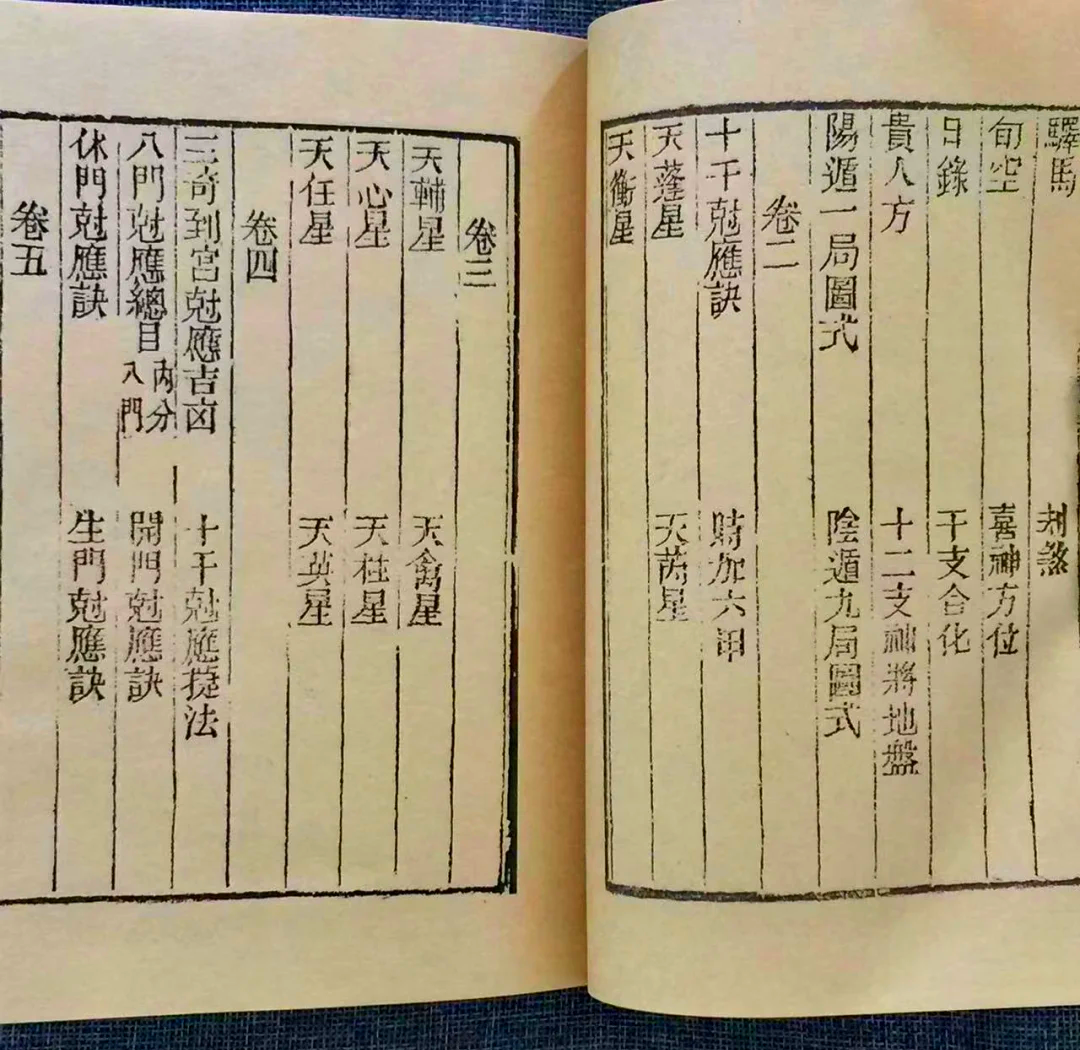 驛馬 刑煞
旬空 喜神方位
日錄 干支合化
貴人方 十二支神將地盤
陽遁一局圖式 陰遁九局圖式
卷二
十干尅應訣 時加六甲
天蓬星 天芮星
天衝星
卷三
天輔星 天禽星
天心星 天柱星
天任星 天英星
卷四
三奇到宮尅應吉凶 十干尅應㨗法
八門尅應總目 內分八門 開門尅應訣
休門尅應訣 生門尅應訣
卷五